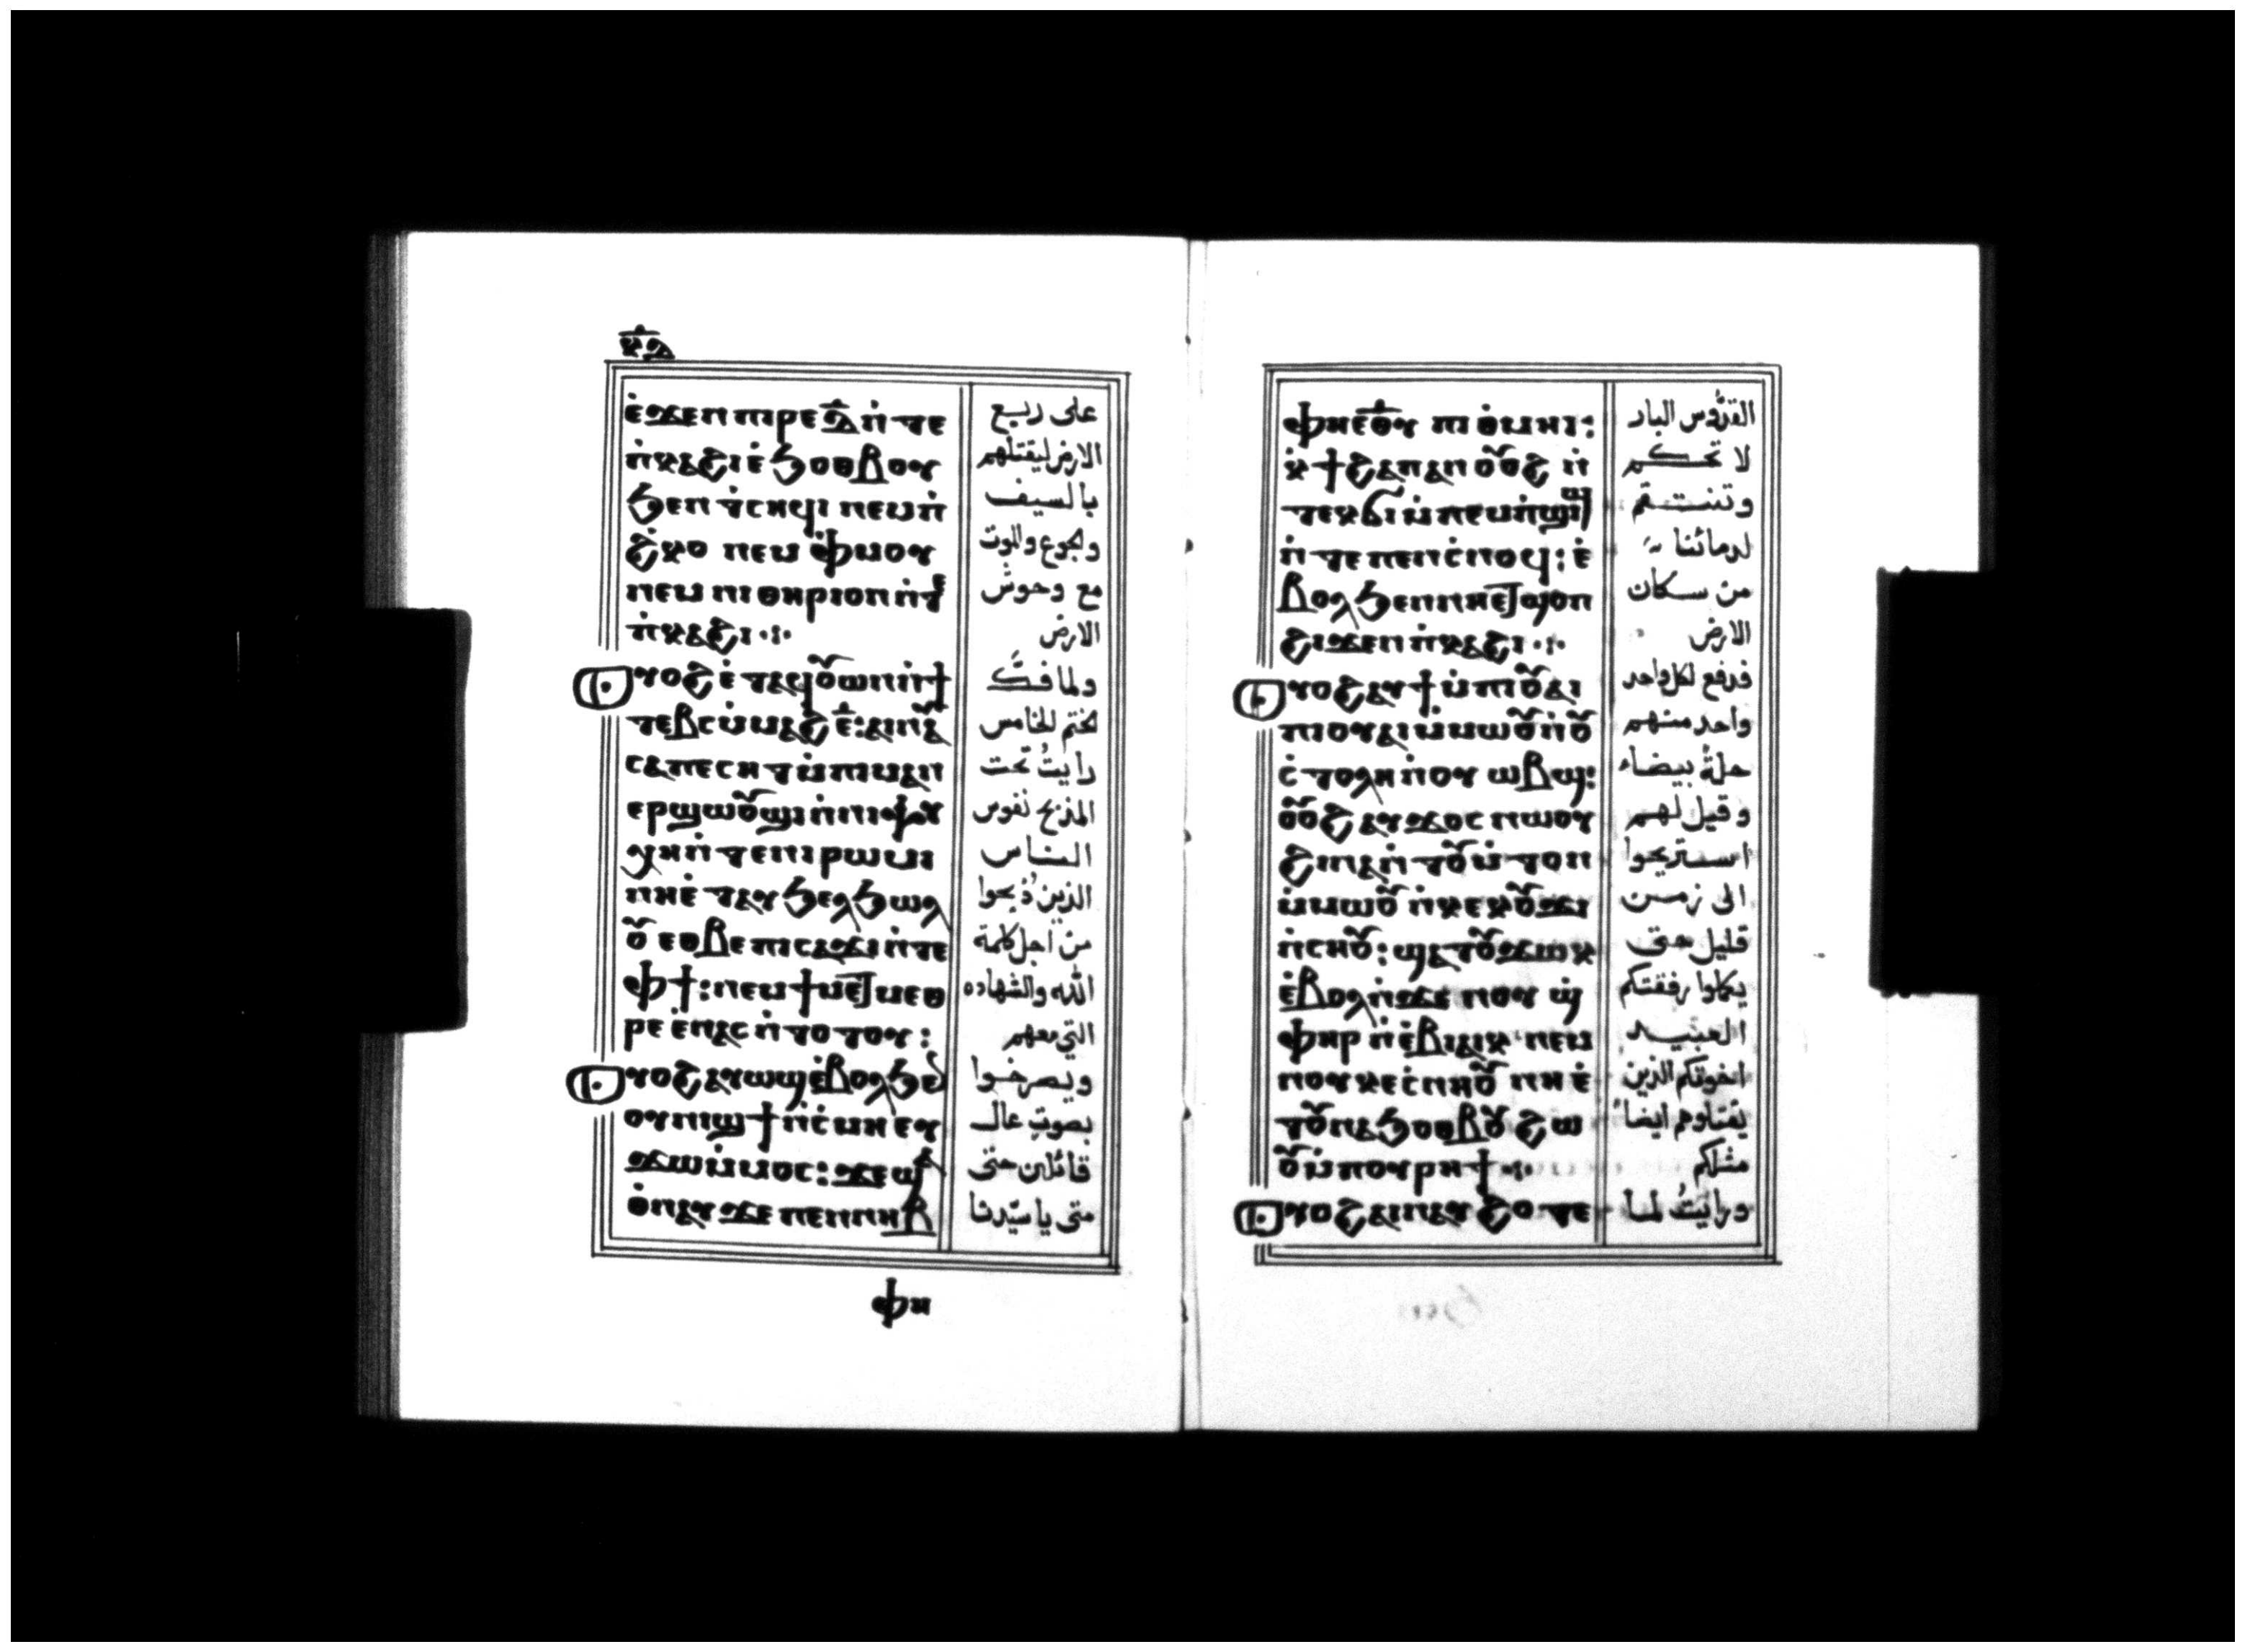 ⲕ̅ⲇ̅
ⲉ̀ϫⲉⲛ ⲡⲓⲣⲉⲇ̅ ⲛ̀ⲧⲉ
ⲛ̀ⲕⲁϩⲓ ⲉ̀ϧⲟⲑⲃⲟⲩ
ϧⲉⲛ ⲧ̀ⲥⲏϥⲓ ⲛⲉⲙ ⲛ̀
ϩ̀ⲕⲟ ⲛⲉⲙ ⲫ̀ⲙⲟⲩ
ⲛⲉⲙ ⲛⲓⲑⲏⲣⲓⲟⲛ ⲛ̀ⲧⲉ
ⲛ̀ⲕⲁϩⲓ ⁘
ⲟⲩⲟϩ ⲉ̀ⲧⲁϥⲟⲩⲱⲛ ⲛ̀ϯ
ⲧⲉⲃⲥ ⲙ̀ⲙⲁϩⲉ̅: ⲁⲓⲛⲁⲩ
ⲥⲁⲡⲉⲥⲏⲧ ⲙ̀ⲡⲓⲙⲁⲛ
ⲉⲣϣⲱⲟⲩϣⲓ ⲛ̀ⲛⲓⲯⲩ
ⲭⲏ ⲛ̀ⲧⲉ ⲛⲓⲣⲱⲙⲓ
ⲛⲏ ⲉ̀ⲧⲁⲩϧⲉⲗϧⲱⲗ
ⲟⲩ ⲉⲑⲃⲉ ⲡⲓⲥⲁϫⲓ ⲛ̀ⲧⲉ
ⲫϯ: ⲛⲉⲙ ϯⲙⲉⲧⲙⲉⲑ
ⲣⲉ ⲉ̀ⲛⲁⲥ ⲛ̀ⲧⲟⲧⲟⲩ:
ⲟⲩⲟϩ ⲁⲩⲱϣ ⲉ̀ⲃⲟⲗ ϧⲉⲛ
ⲟⲩⲛⲓϣϯ ⲛ̀ⲥ̀ⲙⲏ ⲉⲩ
ϫⲱ ⲙ̀ⲙⲟⲥ: ϫⲉ ϣⲁ
ⲑ̀ⲛⲁⲩ ϫⲉ ⲡⲉⲛⲛⲏⲃ
على ربع
الارض ليقتلهم
بالسيف
وبجوع والموت
مع وحوش
الارض
ولما فكّ
لختم الخامس
رايتُ تحت
المذبح نفوس
الناس
الذين ذُبحوا
من اجل كلمة
الله والشهاده
التي معهم
ويصرخوا
بصوتٍ عال
قائلين حتى
متى يا سيّدنا
ⲫⲏ
ⲫⲏⲉ̅ⲑ̅ⲩ ⲡⲓⲑ̀ⲙⲏⲓ:
ⲕ̀ϯϩⲁⲡ ⲁⲛ ⲟⲩⲟϩ ⲛ̀
ⲧⲉⲕϭⲓ ⲙ̀ⲡⲉⲙⲡ̀ϣⲓϣ
ⲛ̀ⲧⲉ ⲡⲉⲛⲥ̀ⲛⲟϥ: ⲉ̀
ⲃⲟⲗ ϧⲉⲛ ⲛⲏⲉⲧϣⲟⲡ
ϩⲓϫⲉⲛ ⲛ̀ⲕⲁϩⲓ ⁘
ⲟⲩⲟϩ ⲁⲩϯ ⲙ̀ⲡⲓⲟⲩⲁⲓ
ⲡⲓⲟⲩⲁⲓ ⲙ̀ⲙⲱⲟⲩ ⲛ̀ⲟⲩ
ⲥ̀ⲧⲟⲗⲏ ⲛ̀ⲟⲩⲱⲃϣ:
ⲟⲩⲟϩ ⲁⲩϫⲟⲥ ⲛⲱⲟⲩ
ϩⲓⲛⲁ ⲛ̀ⲧⲟⲩⲙ̀ⲧⲟⲛ
ⲙ̀ⲙⲱⲟⲩ ⲛ̀ⲕⲉⲕⲟⲩϫⲓ
ⲛ̀ⲥⲏⲟⲩ: ϣⲁⲧⲟⲩϫⲱⲕ
ⲉ̀ⲃⲟⲗ ⲛ̀ϫⲉ ⲛⲟⲩϣ̀
ⲫⲏⲣ ⲛ̀ⲉ̀ⲃⲓⲁⲓⲕ ⲛⲉⲙ
ⲛⲟⲩⲕⲉⲥ̀ⲛⲏⲟⲩ ⲛⲏ ⲉ̀
ⲧⲟⲩⲛⲁϧⲟⲑⲃⲟⲩ ϩⲱ
ⲟⲩ ⲙ̀ⲡⲟⲩⲣⲏϯ ⁘
ⲟⲩⲟϩ ⲁⲓⲛⲁⲩ ϩⲟⲧⲉ
القدّوس البار
لا تحكم
وتنتقم
لدمائنا
من سكان
الارض
فدفع لكل واحد
واحد منهم
حلةٌ بيضاء
وقيل لهم
استريحوا
الى زمن
قليل حتى
يكملوا رفقتكم
العبيد
اخوتكم الذين
يقتلوهم ايضاً
مثلكم
ورايتُ لما